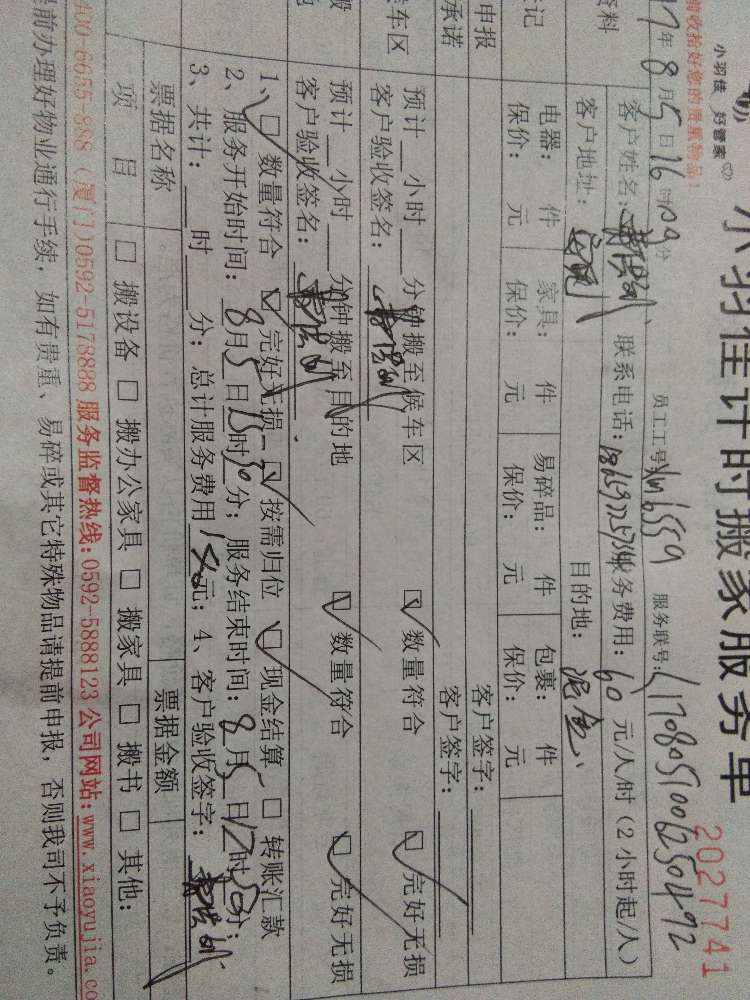 小羽佳计时搬家服务单
2027741
小羽佳 好管家
前收拾好您的贵重物品!
员工工号 xm6559 服务联号:
年8月5日16时09分
资料 客户姓名: 联系电话: 服务费用:60元/人/时(2小时起/人)
客户地址: 目的地:
登记 电器: 件 家具: 件 易碎品: 件 包裹: 件
保价: 元 保价: 元 保价: 元 保价: 元
申报 客户签字:
承诺 客户签字:
候车区 预计__小时__分钟搬至候车区 数量符合 完好无损
客户验收签名:
预计__小时__分钟搬至目的地 数量符合 完好无损
客户验收签名:
1、□ 数量符合 □ 完好无损 □ 按需归位 □ 现金结算 □ 转账汇款
2、服务开始时间:8月5日15时30分; 服务结束时间:8月5日17时50分;
3、共计:__时__分; 总计服务费用 元; 4、客户验收签字:
票据名称 票据金额
项 目 □ 搬设备 □ 搬办公家具 □ 搬家具 □ 搬书 □ 其他:
400-6655-888 (厦门)0592-5178888 服务监督热线:0592-5888123 公司网站:www.xiaoyujia.co
提前办理好物业通行手续,如有贵重、易碎或其它特殊物品请提前申报,否则我司不予负责。